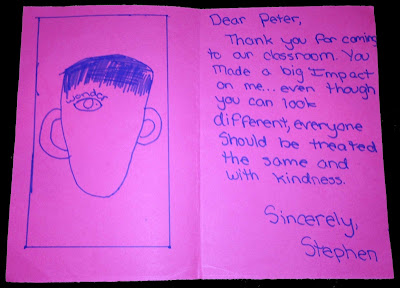 wonder
Dear Peter,
Thank you for coming
to our classroom. You
made a big Impact
on me...even though
you can look
different, everyone
should be treated
the same and
with kindness.
Sincerely,
Stephen